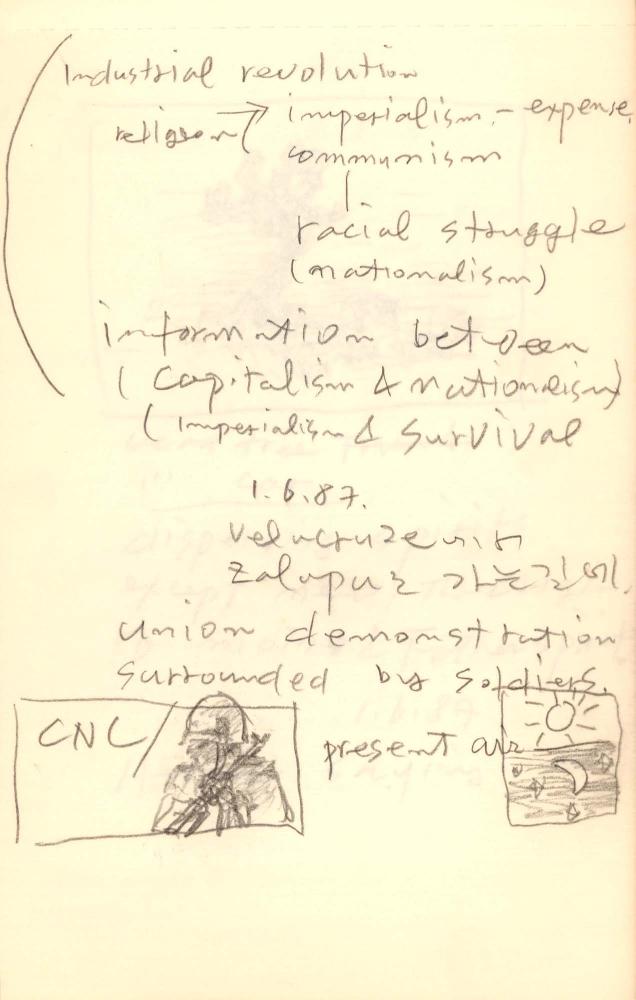 Industrial revolution
religion → imperialism. - expense.
communism
racial struggle
(nationalism)
information between
( Capitalism & nationalism)
( Imperialism & Survival
1.6.87.
Velacruze에서
Zalapa로 가는길에.
union demonstration
surrounded by soldiers.
CNC/
present air